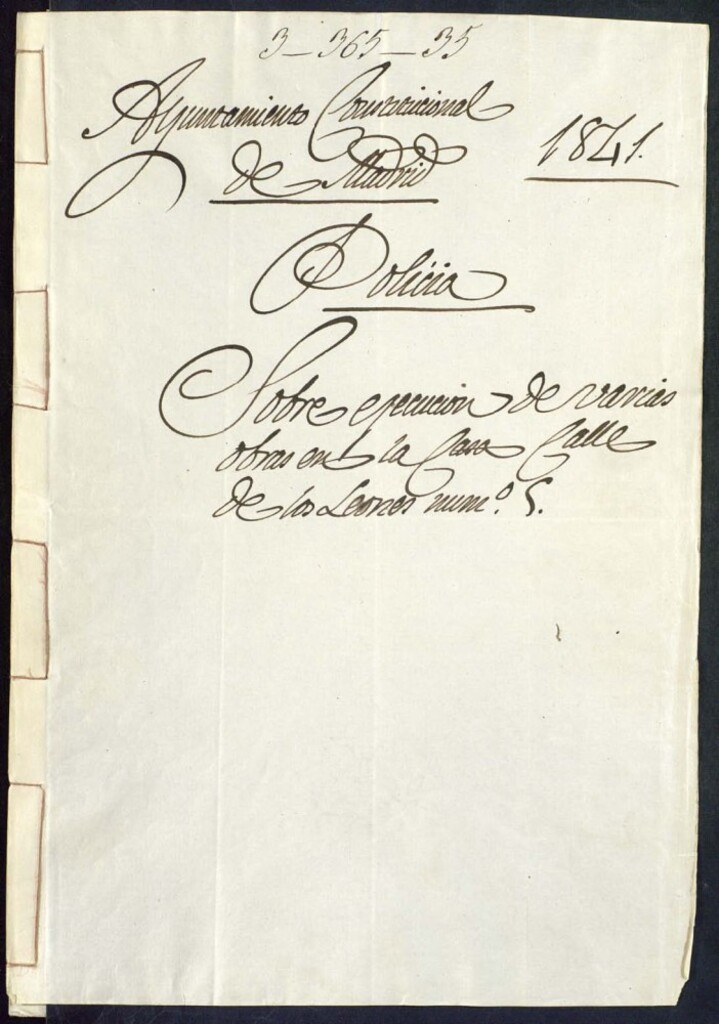 3-365-35
Ayuntamiento Constitucional
de Madrid
1841.
Policia
Sobre ejecucion de varias
obras en la Casa Calle
de los Leones num.º 5.